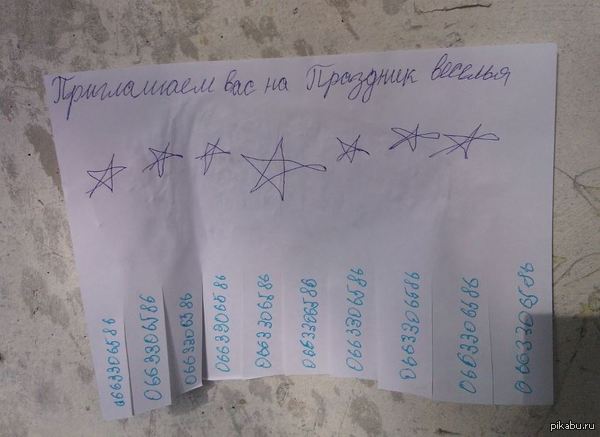 Приглашаем вас на Праздник веселья
0663306586
0663306586
0663306586
0663306586
0663306586
0663306586
0663306586
0663306686
0663306686
0663306586
pikabu.ru